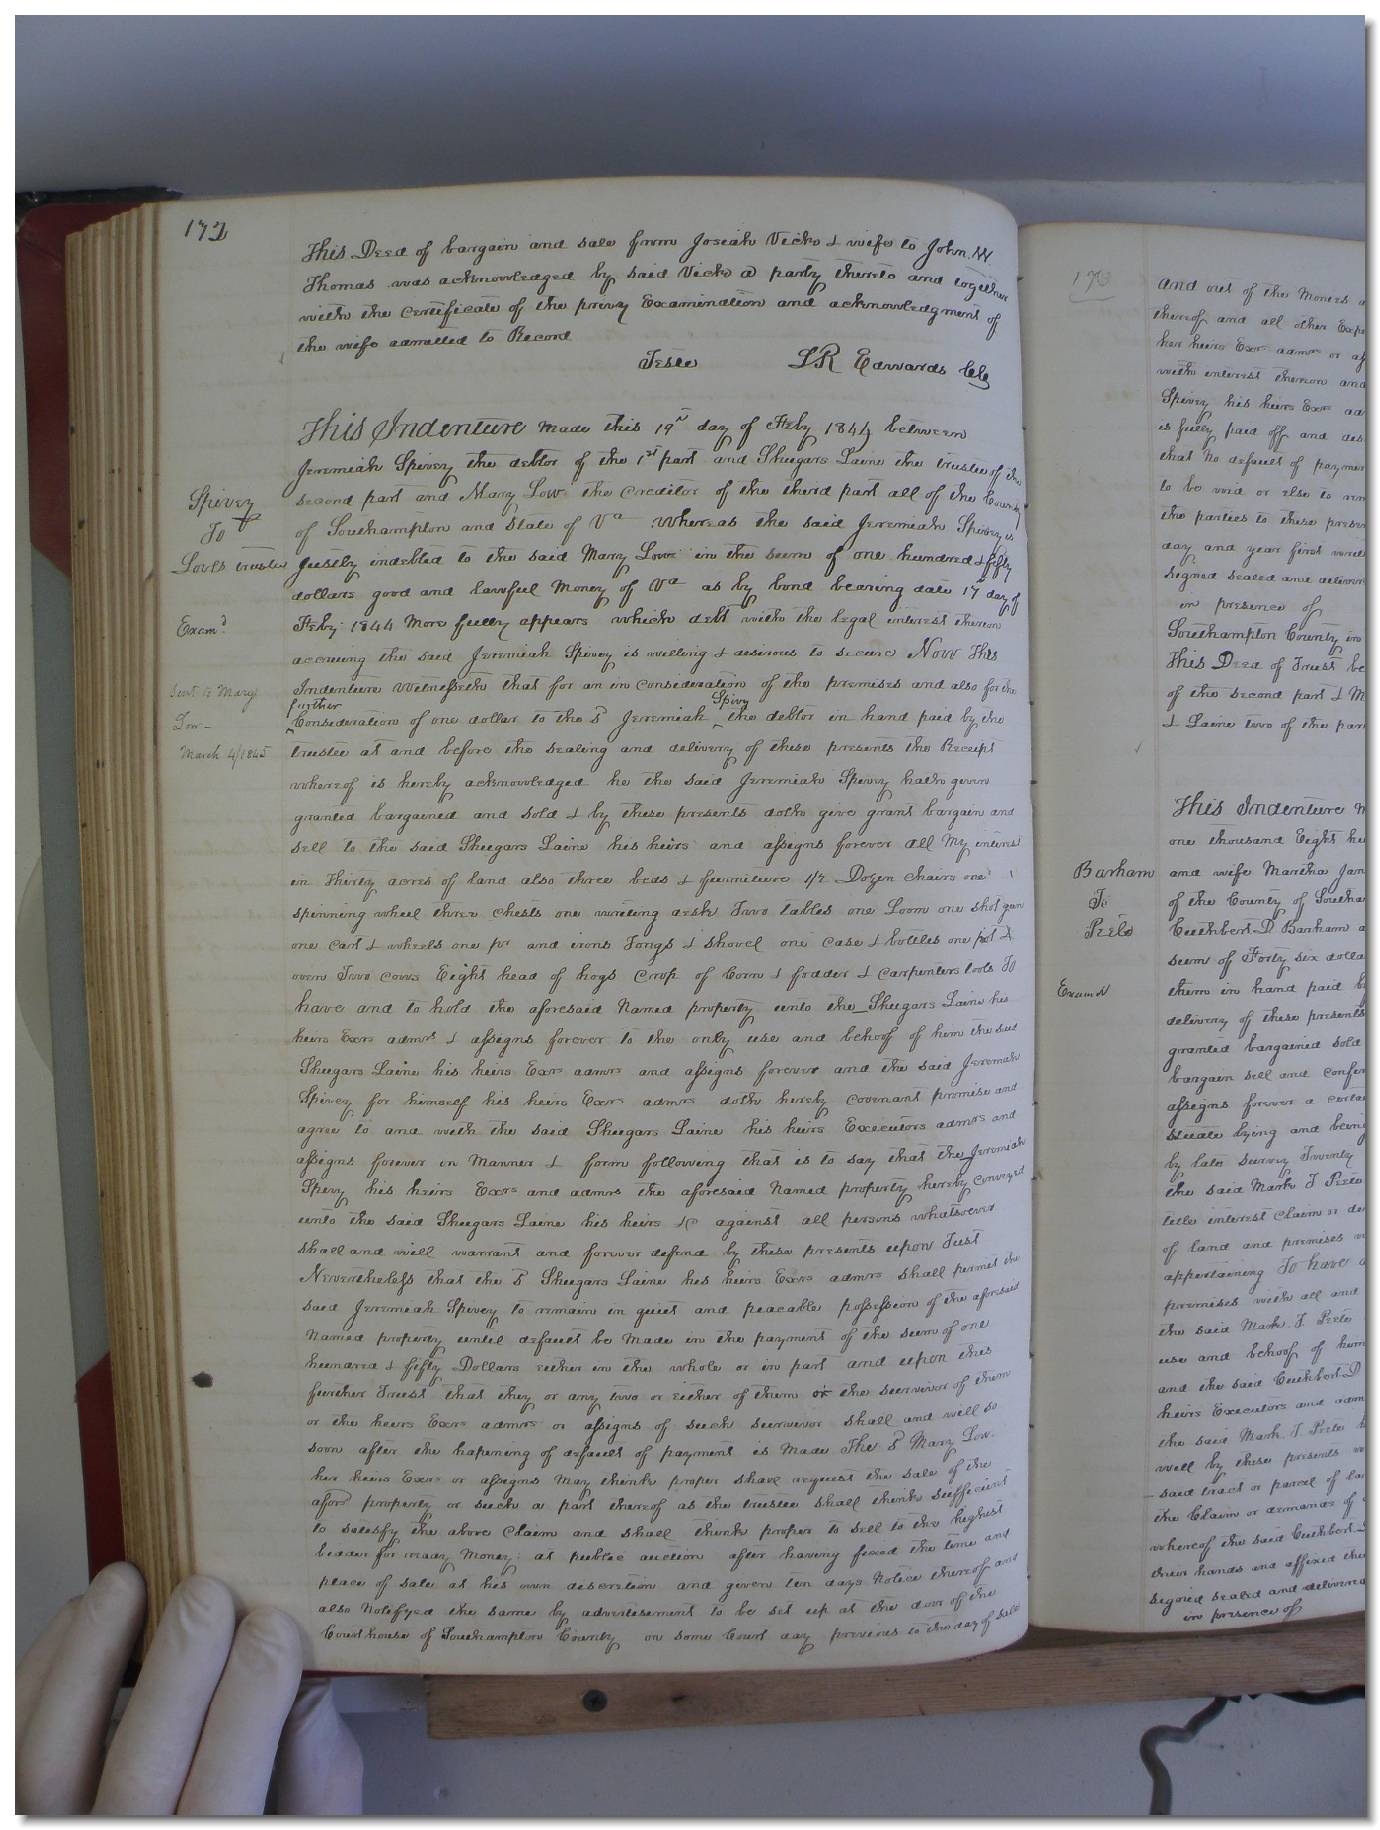 172
This Deed of bargain and sale from Josiah Vick & wife to John. W.
Thomas was acknowledged by said Vick a party thereto and together
with the certificate of the privy Examination and acknowledgment of
the wife admitted to Record
Teste L R Edwards Clk
This Indenture made this 19th day of Feby 1844 between
Jeremiah Spivey the debtor of the 1st part and Shugars Laine the trustee of the
Spivey
To
Lows trustee
Examd
Sent to Mary
Low
March 4/1845
second part and Mary Low the Creditor of the third part all of the County
of Southampton and State of Va Whereas the said Jeremiah Spivey is
Justly indebted to the said Mary Low in the sum of one hundred & fifty
dollars good and lawful Money of Va as by bond bearing date 17 day of
Feby 1844 More fully appears which debt with the legal interest thereon
accruing the said Jeremiah Spivey is willing & desirous to secure Now This
Indenture Witnesseth that for an in consideration of the premises and also for the
further Consideration of one dollar to the sd Jeremiah Spivy the debtor in hand paid by the
trustee at and before the sealing and delivery of these presents the Receipt
whereof is hereby acknowledged he the said Jeremiah Spivey hath given
granted bargained and sold & by these presents doth give grant bargain and
sell to the said Shugars Laine his heirs and assigns forever all My interest
in Thirty acres of land also three beds & furniture 1/2 Dozen Chairs one
spinning wheel three chests one writing desk Two tables one Loom one shot gun
one cart & wheels one pr and irons Tongs & shovel one case & bottles one pot &
oven Two cows Eight head of hogs Crop of Corn & fodder & carpenters tools To
have and to hold the aforesaid Named property unto the Shugars Laine his
heirs Exrs admrs & assigns forever to the only use and behoof of him the said
Shugars Laine his heirs Exrs admrs and assigns forever and the said Jeremiah
Spivey for himself his heirs Exrs admrs doth hereby covenant promise and
agree to and with the said Shugars Laine his heirs Executors admrs and
assigns forever in Manner & form following that is to say that the Jeremiah
Spivy his heirs Exrs and admrs the aforesaid Named property hereby conveyed
unto the said Shugars Laine his heirs &c against all persons whatsoever
shall and will warrant and forever defend by these presents upon Tust
Nevertheless that the sd Shugars Laine his heirs Exrs admrs shall permit the
said Jeremiah Spivey to remain in quiet and peacable possession of the aforesaid
Named property until default be Made in the payment of the sum of one
hundred & fifty Dollars either in the whole or in part and upon this
further Trust that they or any two or either of them or the survivor of them
or the heirs Exrs admrs or assigns of such survivor shall and will so
soon after the hapening of default of payment is Made The sd Mary Low.
her heirs Exrs or assigns May think proper shall request the sale of the
aforsd property or such a part thereof as the trustee shall think sufficient
to satisfy the above Claim and shall think proper to sell to the highest
bidder for ready Money at public auction after having fixed the time and
place of sale at his own discretion and given ten days Notice thereof and
also Notifyed the same by advertisement to be set up at the door of the
Courthouse of Southampton County on some Court day previous to the day of sale
173
and out of the Moneys
thereof and all other
her heirs Exrs admrs or
with interest thereon and
Spivey his heirs Exrs
is fully paid off and
that No default of
to be void or else to
the parties to these
day and year first
Signed sealed and
in presence of
Southampton County in
This Deed of Trust
of the second part &
& Laine two of the
This Indenture
one thousand Eight
Barham
To
Peete
Examd
and wife Martha
of the County of
Cuthbert D Barham
sum of Forty six
them in hand paid
delivery of these presents
granted bargained sold
bargain sell and
assigns forever a
situate lying and
by late survey Twenty
the said Mark J Peete
title interest Claim or
of land and premises
appertaining To have
premises with all and
the said Mark. J. Peete
use and behoof of
and the said Cuthbert D
heirs Executors and
the said Mark. J Peete
will by these presents
said tract or parcel of
the Claim or demands of
whereof the said Cuthbert
their hands and affixed
signed sealed and
in presence of